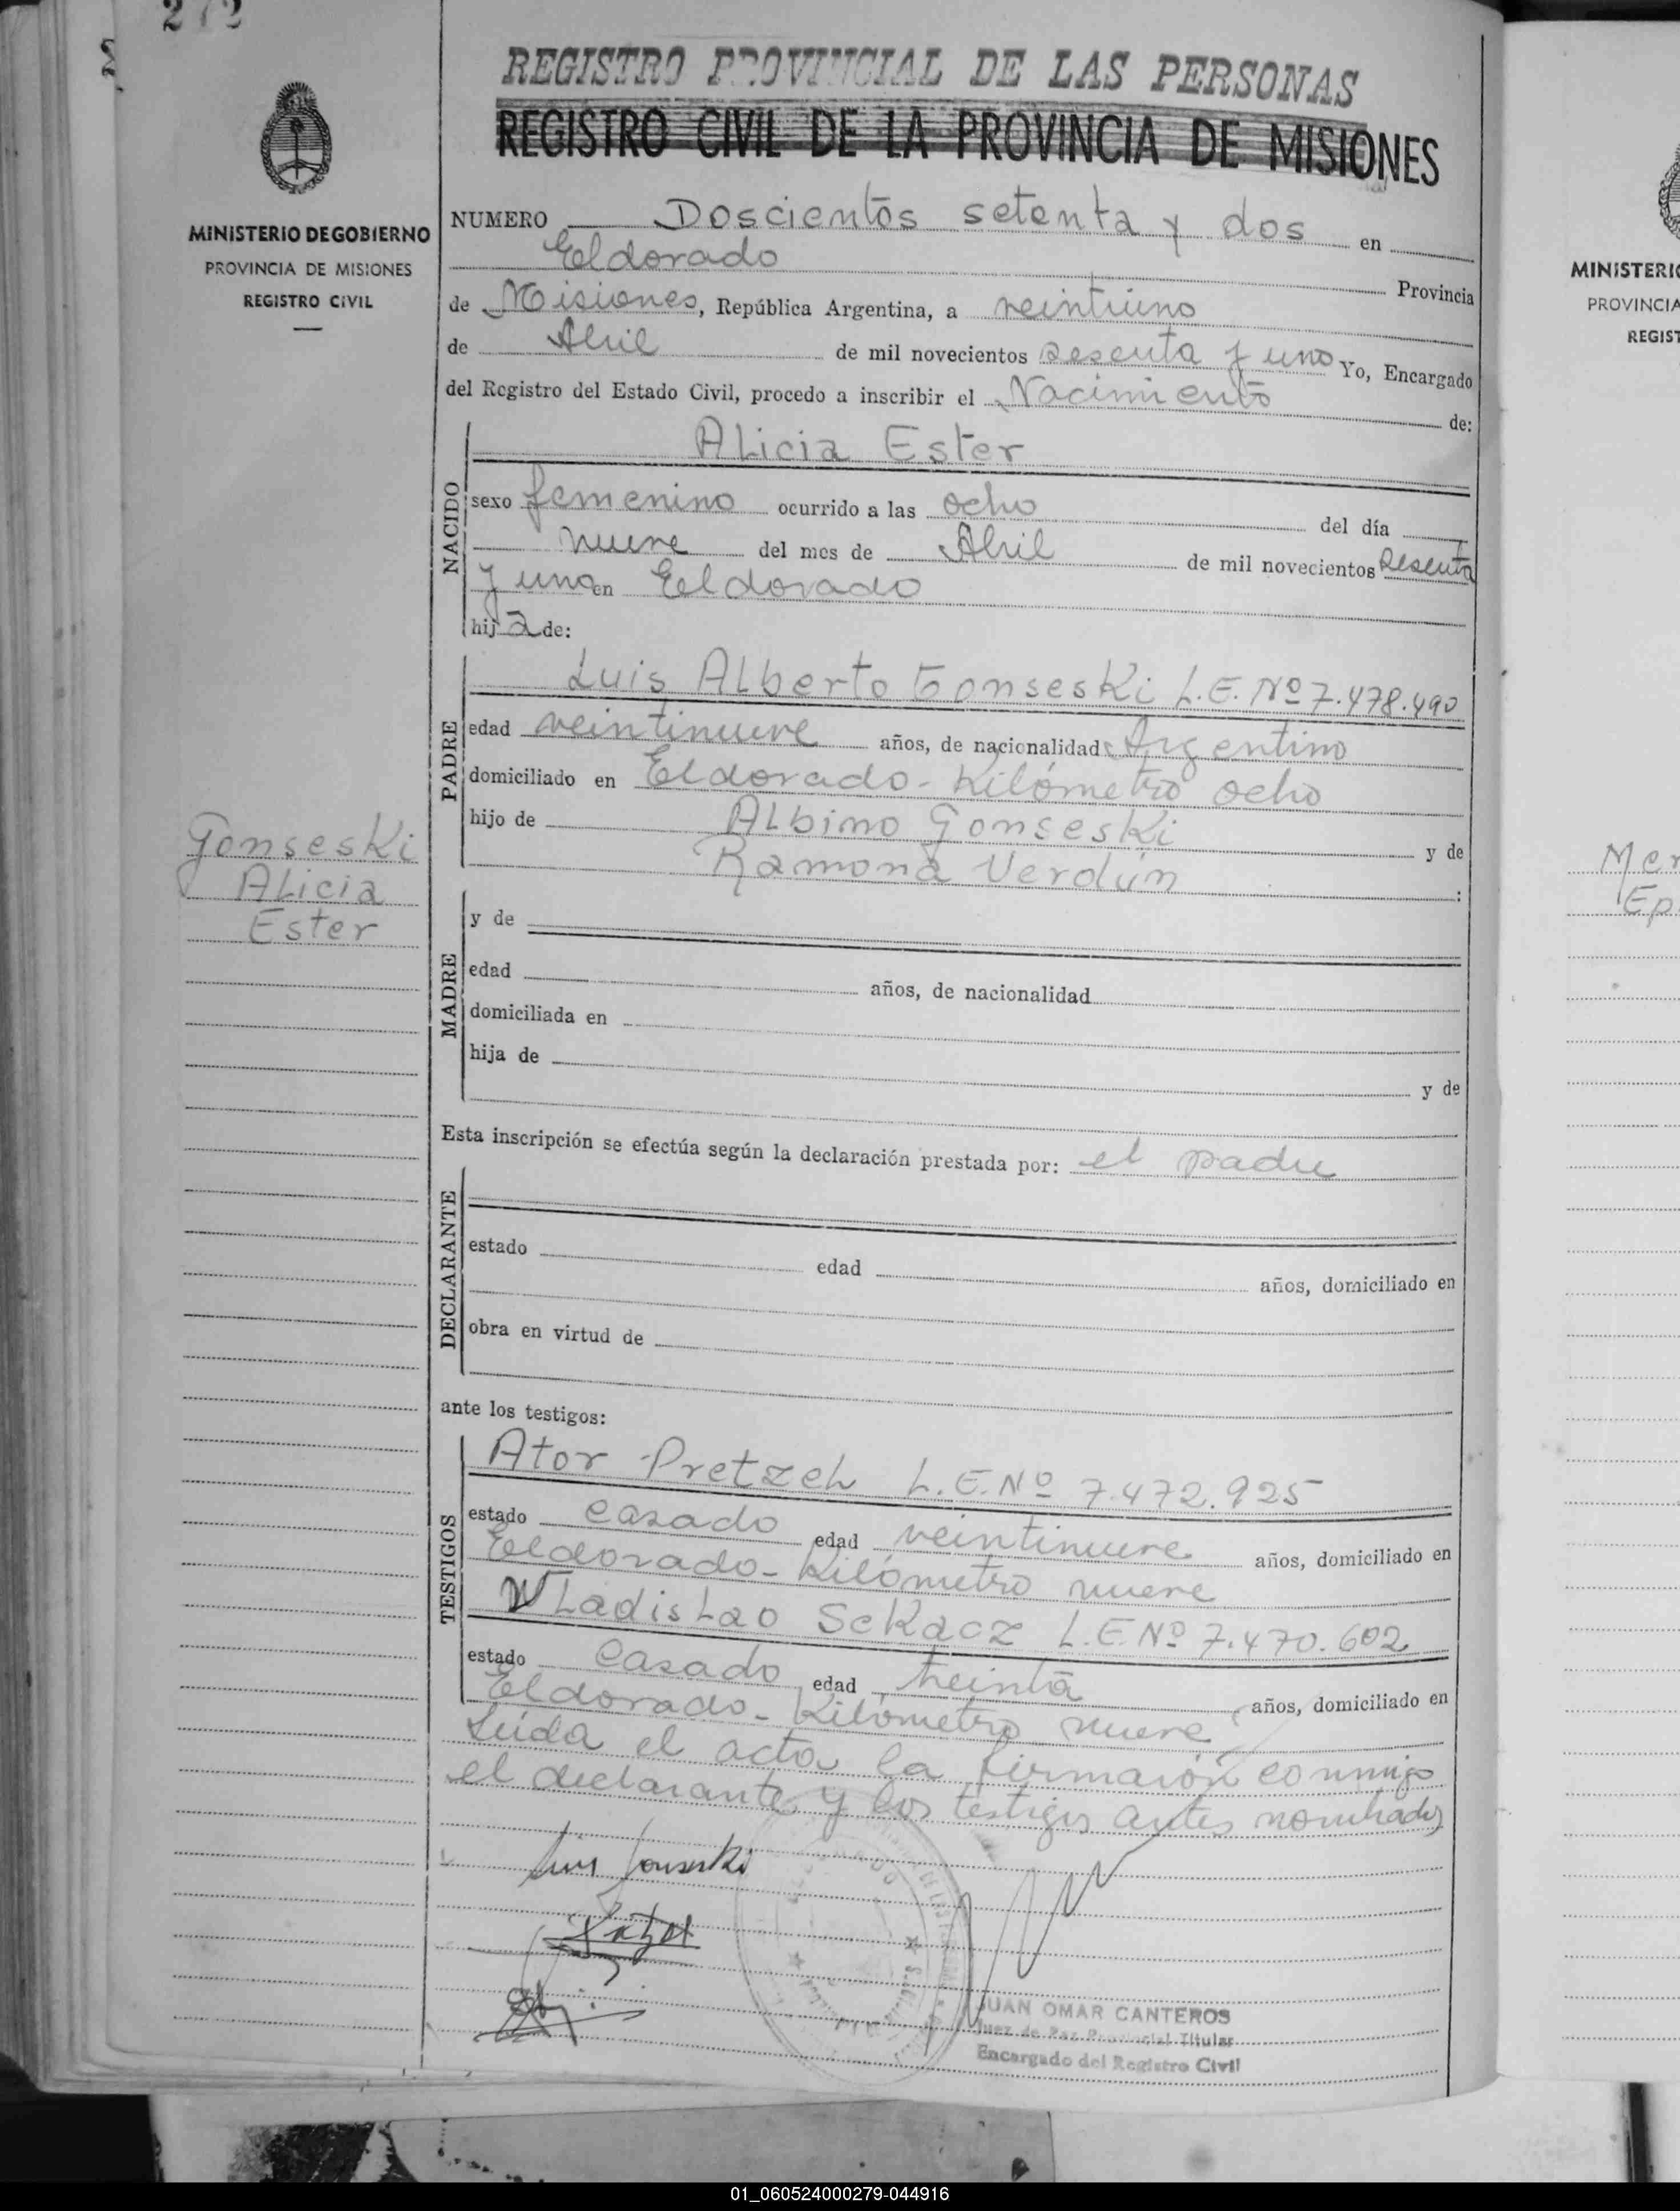 272
REGISTRO PROVINCIAL DE LAS PERSONAS
REGISTRO CIVIL DE LA PROVINCIA DE MISIONES
MINISTERIO DE GOBIERNO
PROVINCIA DE MISIONES
REGISTRO CIVIL
NUMERO Doscientos setenta y dos en
Eldorado Provincia
de Misiones, República Argentina, a veintiuno
de Abril de mil novecientos sesenta y uno Yo, Encargado
del Registro del Estado Civil, procedo a inscribir el Nacimiento de:
NACIDO
Alicia Ester
sexo femenino ocurrido a las ocho del día
nueve del mes de Abril de mil novecientos sesenta
y uno en Eldorado
hija de:
PADRE
Luis Alberto Gonseski L.E. Nº 7.478.490
edad veintinueve años, de nacionalidad Argentino
domiciliado en Eldorado - Kilómetro ocho
hijo de Albino Gonseski y de
Ramona Verdún ;
Gonseski
Alicia
Ester
MADRE
y de
edad años, de nacionalidad
domiciliada en
hija de y de
Esta inscripción se efectúa según la declaración prestada por: el padre
DECLARANTE
estado edad años, domiciliado en
obra en virtud de
ante los testigos:
TESTIGOS
Ator Pretzel L.E. Nº 7.472.925
estado casado edad veintinueve años, domiciliado en
Eldorado - Kilómetro nueve
Wladislao Sekacz L.E. Nº 7.470.602
estado casado edad treinta años, domiciliado en
Eldorado - Kilómetro nueve
Leída el acta la firmaron conmigo
el declarante y los testigos antes nombrados
Luis Gonseski
JUAN OMAR CANTEROS
Juez de Paz Provincial Titular
Encargado del Registro Civil
MINISTERIO
PROVINCIA
REGIST
Mer
Ep
01_060524000279-044916